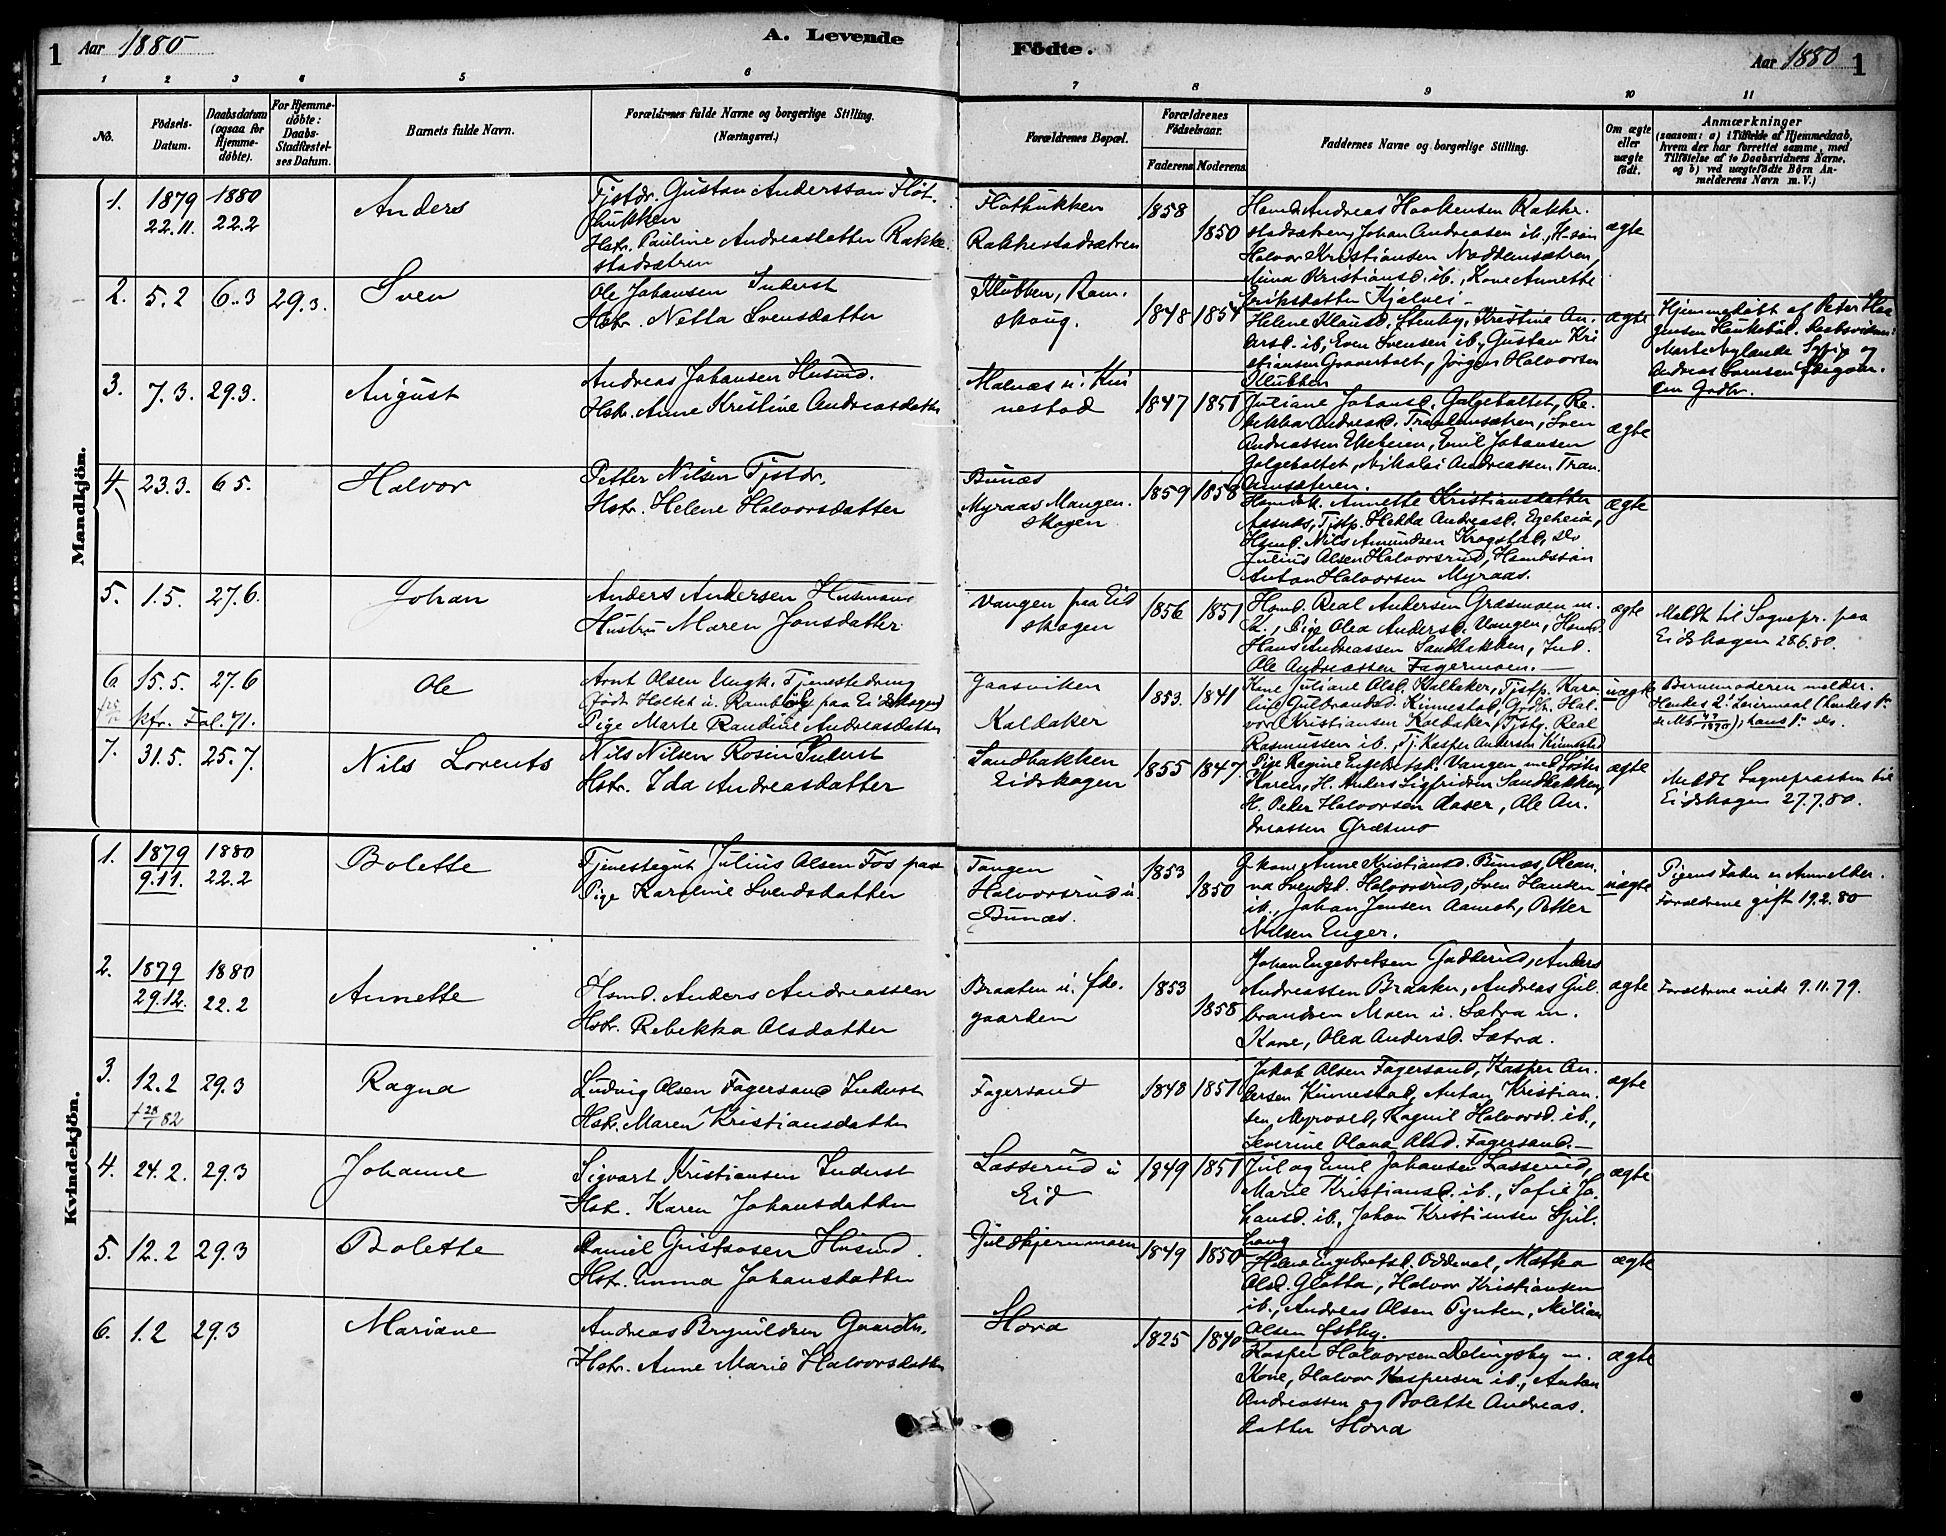 1 Aar 1880 A. Levende Födte. Aar 1880 1
1 2 3 4 5 6 7 8 9 10 11
No.
Födsels-
Datum.
Daabsdatum
(ogsaa for
Hjemme-
döbte).
For Hjemme-
döbte:
Daabs-
Stadfæstel-
ses Datum.
Barnets fulde Navn.
Forældrenes fulde Navne og borgerlige Stilling.
(Næringsvei.)
Forældrenes Bopæl.
Forældrenes
Födselsaar.
Faderens Moderens
Faddernes Navne og borgerlige Stilling.
Om ægte
eller
uægte
födt.
Anmærkninger
(saasom: a) i Tilfælde af Hjemmedaab,
hvem der har forrettet samme, med
Tilföielse af to Daabsvidners Navne,
og b) ved uægtefödte Börn An-
melderens Navn m. V.)
Mandkjön.
1. 1879 1880
22.11. 22.2
Anders
Tjstdr. Gustav Anderssøn Flöt-
bukken
Hstr. Pauline Andreasdatter Rakke-
stadsætren
Flötbukken
Rakkestadsætren
1858 1850
Hsmd. Andreas Haakensen Rakke-
stadsætren, Johan Andreasen ib., H-søn
Halvor Kristiansen Nøddensætren,
Mina Kristiansd. ib., Kone Annette
Eriksdatter Kjølvei.
ægte
2. 5.2 6.3 29.3.
Sven
Ole Johansen Inderst
Hstr. Netta Svensdatter
Klubben, Ram-
skoug.
1848 1854
Helene Klausd. Stenby, Kristine An-
dersd. ib., Even Svensen ib., Gustav Kri-
stiansen Graverholt, Jørgen Halvorsen
Klubben
ægte
Hjemmedöbt af Peter Haa-
gensen Haukebøl. Daabsvidner:
Marte Nylande
Andreas Larsen
3. 7.3. 29.3.
August
Andreas Johansen Husmd.
Hstr. Anne Kristine Andreasdatter
Malnæs u. Kin-
nestad
1847 1851
Juliane Johansd. Galgeholtet, Re-
bekka Andreasd. Tranbmsætren, Sven
Andreassen Ekeheien, Emil Johansen
Galgeholtet, Nikolai Andreassen Tran-
ægte
4. 23.3. 6 5.
Halvor
Petter Nilsen Tjstdr.
Hstr. Helene Halvorsdatter
Bunæs
Myraas Mangen-
skogen
1859 1858
Hsmdsk. Annette Kristiansdatter
Aasnæs, Tjstp. Hekka Andreasd. Egeheia,
Hsmd. Nils Amundsen Krogstad, do
Julius Olsen Halvorsrud, Hsmdssøn
Anton Halvorsen Myraas.
ægte
5. 1.5. 27.6.
Johan
Anders Andersen Husmand
Hustru Maren Jonsdatter
Vangen paa Eid
skogen
1856 1851
Hsmd. Real Andersen Græsmoen m.
K., Pige Olea Andersd. Vangen, Hsmd.
Hans Andreassen Sandbakken, Ind.
Ole Andreassen Fagermoen.
ægte
Meldt til Sognepr. paa
Eidskogen 28.6.80.
6. 15.5. 27.6
kfr. Fol. 71.
Ole
Arnt Olsen Ungk. Tjenestedreng
(født Holtet u. Rambøl paa Eidskogen)
Pige Marte Randine Andreasdatter
Gaasviken
Kaldaker
1853. 1841
Kone Juliane Olsd. Kaldaker, Tjstp. Karo-
line Gulbrandsd. Kinnestad, Grdbr. Hal-
vor Kristiansen Kaldaker, Tjstg. Real
Rasmussen ib., Tj. Kasper Andersen Kinnestad
uægte
Barnemoderen melder.
Hendes 2det Leiermaal
7. 31.5. 25.7.
Nils Lorents
Nils Nilsen Rosin Inderst
Hstr. Ida Andreasdatter
Sandbakken
Eidskogen
1855 1847
Pige Regine Engebretsd. Vangen med Søster
Karen, H. Anders Sigfridsen Sandbakken,
H. Peter Halvorsen Aaser, Ole An-
dreassen Græsmo
ægte
Meldt Sognepræsten til
Eidskogen 27.7.80.
Kvindekjön.
1. 1879 1880
9.11. 22.2
Bolette
Tjenestegut Julius Olsen Fos paa
Pige Karoline Svendsdatter
Tangen
Halvorsrud u.
Bunæs.
1853 1850
G.kone Anne Kristiansd. Bunæs, Olean-
na Svendsd. Halvorsrud, Sven Hansen
ib., Johan Jensen Aamot, Petter
Nilsen Enger.
uægte
Pigens Fader er Anmelder.
Forældrene gift 19.2.80
2. 1879 1880
29.12. 22.2
Annette
Hsmd. Anders Andreassen
Hstr. Rebekka Olsdatter
Braaten u. Øde-
gaarden
1853 1858
Johan Engebretsen Gaddernd, Anders
Andreassen Braaten, Andreas Gul-
brandsen Moen u. Sætra m.
Kone, Olea Andersd. Sætra.
ægte
Forældrene viede 9.11.79.
3. 12.2 29.3
† 28/1 82
Ragna
Ludvig Olsen Fagersand Inderst
Hstr. Maren Kristiansdatter
Fagersand
1848 1851
Jakob Olsen Fagersand, Kasper An-
dersen Kinnestad, Anton Kristian-
sen Myrvold, Ragnil Halvorsd. ib.,
Severine Olava Olsd. Fagersand.
ægte
4. 24.2. 29.3
Johanne
Sigvart Kristiansen Inderst
Hstr. Karen Johansdatter
Lasserud u
Eid
1849 1851
Jul og Emil Johansen Lasserud,
Marie Kristiansd. ib., Sofie Jo-
hansd. ib., Johan Kristiansen Spil-
haug
ægte
5. 12.2 29.3
Bolette
Daniel Gustavsen Husmd.
Hstr. Emma Johansdatter
Guldkjernmoen
1849 1850
Helene Engebretsd. Oddeval, Mathea
Olsd. Gløtta, Halvor Kristiansen
ib., Andreas Olsen Tynken, Milian
Olsen Østby.
ægte
6. 1.2 29.3
Mariane
Andreas Brynildsen Gaardbr.
Hstr. Anne Marie Halvorsdatter
Hovd
1825 1840
Kasper Halvorsen Delingsby m.
Kone, Halvor Kaspersen ib., Anton
Andreassen og Bolette Andreas-
datter Hovd
ægte